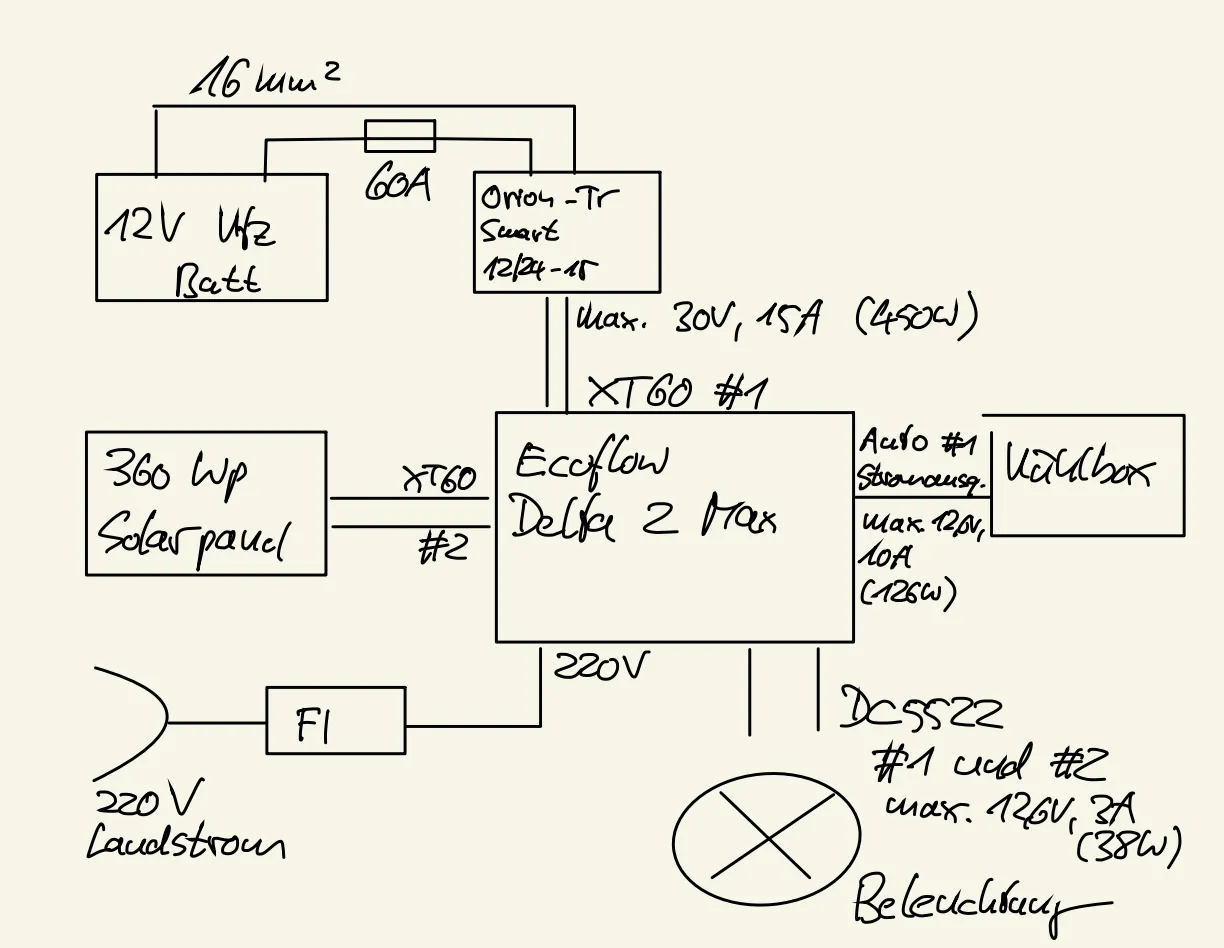 16 mm²
60A
12V Kfz
Batt
Orion-Tr
Smart
12/24-15
max. 30V, 15A (450W)
XT60 #1
360 Wp
Solarpanel
XT60
#2
Ecoflow
Delta 2 Max
Auto #1
Stromausg.
max. 12,6V,
10A
(126W)
Kühlbox
220V
FI
220V
Landstrom
DC5522
#1 und #2
max. 12,6V, 3A
(38W)
Beleuchtung